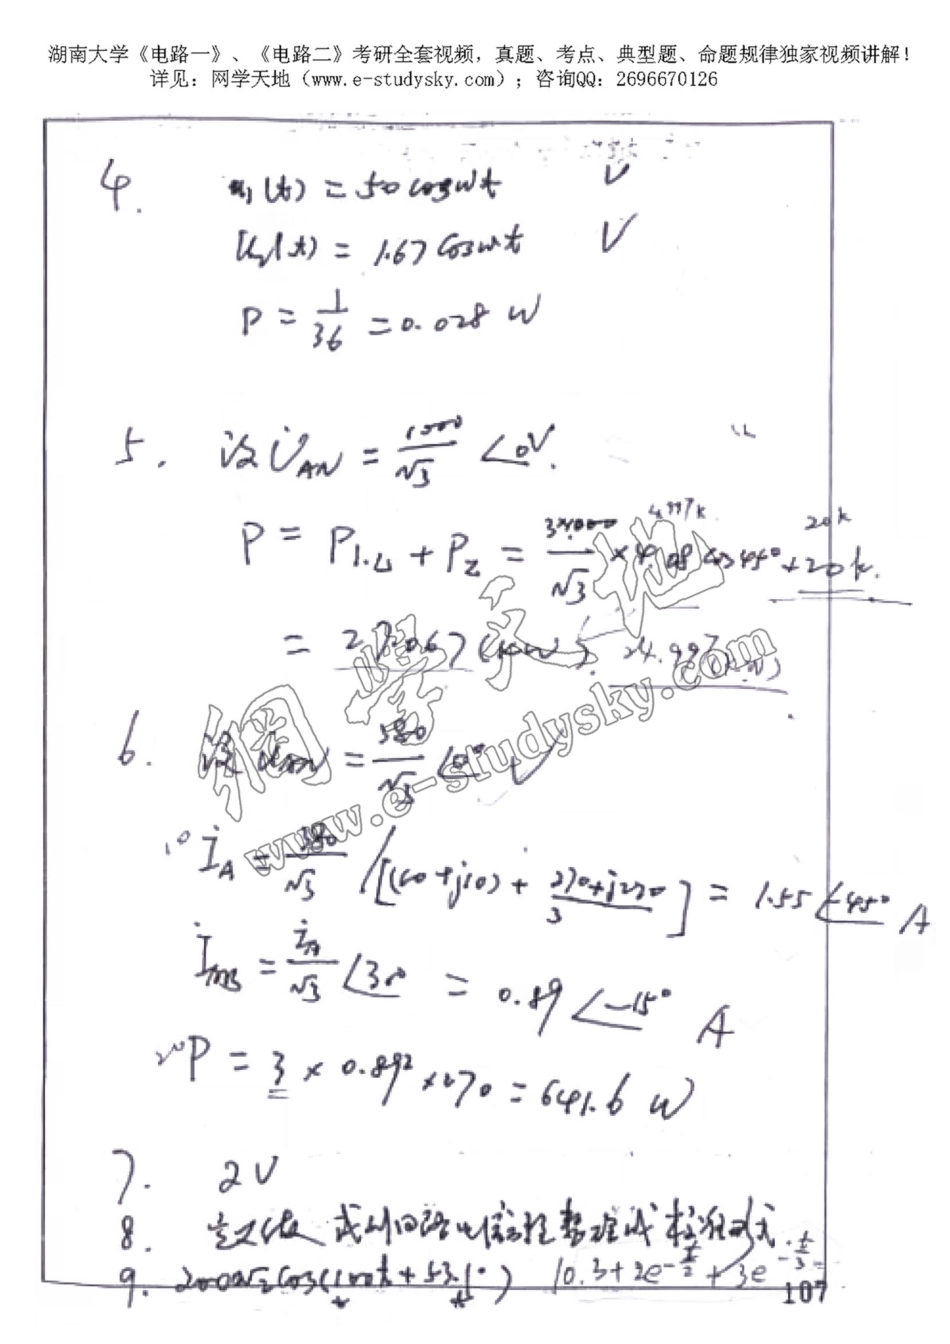 湖南大学《电路一》、《电路二》考研全套视频，真题、考点、典型题、命题规律独家视频讲解！
详见：网学天地（www.e-studysky.com）；咨询QQ：2696670126
4. u₁(t) = 50coswt V
u₂(t) = 1.67coswt V
P = 1/36 = 0.028 W
5. 设 U̇AN = 1000/√3 ∠0 V.
P = P1.L + PZ =
24.997(kW)
網學天地
www.e-studysky.com
6. 设 U̇AN = 380/√3 ∠0° V
1° İA = 380/√3 /[(10+j10) + 270+j270/3] = 1.55∠-45° A
= İA/√3 ∠30 = 0.89∠-15° A
2° P = 3 × 0.89² × 270 = 641.6 W
7. 2V
8.
9. 200√2cos(100t+53.1°) 10.3+2e^-t/2 + 3e^-t/3
107